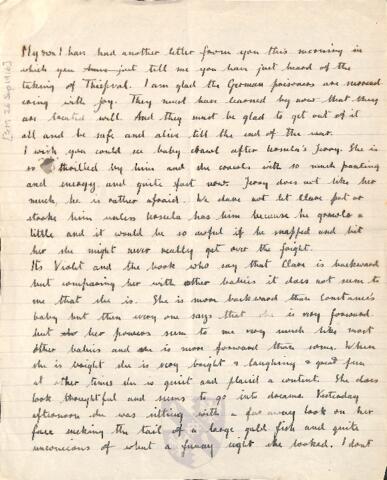 [PM 26 Sep 1916]
My own I have had another letter from you this morning in
which you just tell me you have just heard of the
taking of Thiepval. I am glad the German prisoners are
with joy. They must have learned by now that they
are treated well. And they must be glad to get out of it
all and be safe and alive till the end of the war.
I wish you could see baby crawl after Ursula's Jerry. She is
so thrilled by him and she crawls with so much panting
and energy and quite fast now. Jerry does not like her
much, he is rather afraid. We dare not let Clare pat or
stroke him unless Ursula has him because he growls a
little and it would be so awful if he snapped and bit
her she might never really get over the fright.
Its Violet and the book who say that Clare is backward
but comparing her with other babies it does not seem to
me that she is. She is more backward than Constance's
baby but then every one says that she is very forward
but her powers seem to me very much like most
other babies and she is more forward than some. When
she is bright she is very bright & laughing & great fun
at other times she is quiet and placid & content. She does
look thoughtful and seems to go into dreams. Yesterday
afternoon she was sitting with a far away look on her
face sucking the tail of a large gold fish and quite
unconscious of what a funny sight she looked. I dont